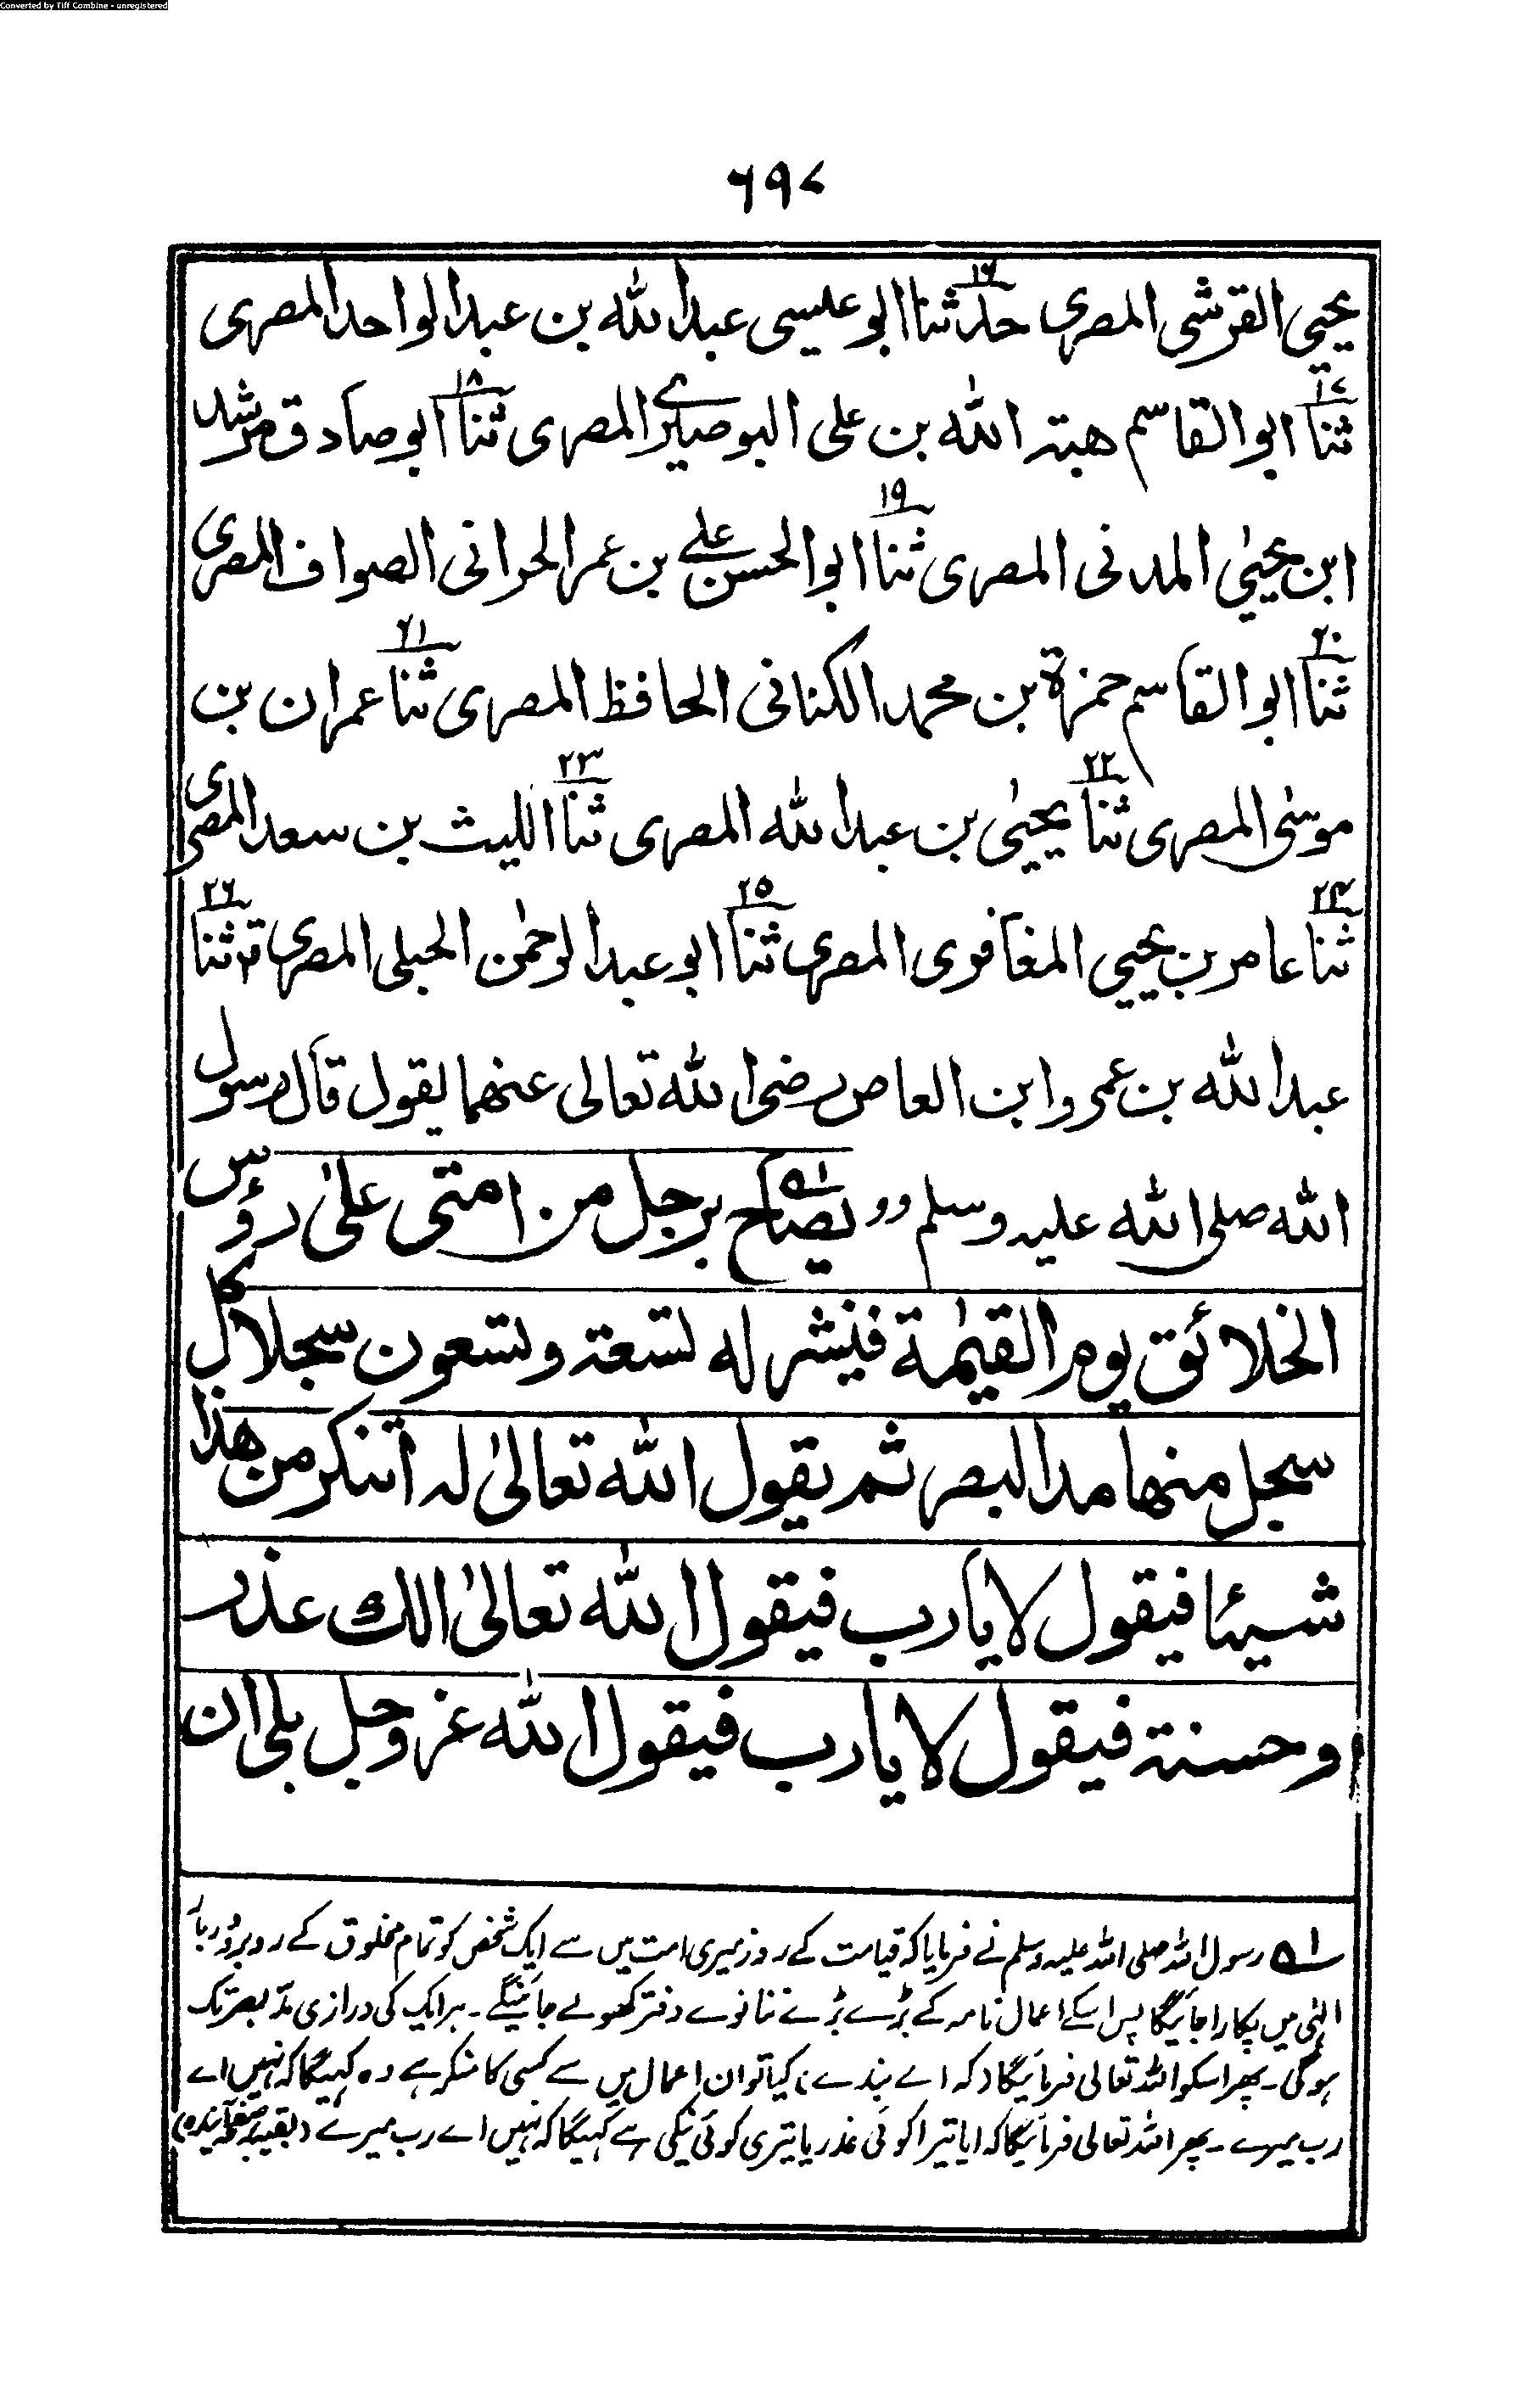 Converted by Tiff Combine - unregistered
۶۹۷
يحيى القرشى المصرى حدثنا ۱۶ ابو عيسى عبد الله بن عبد الواحد المصرى
۱۷ ثنا ابو القاسم هبته الله بن على البوصيرے المصرى ۱۸ ثنا ابو صادق مرشد
ابن يحيٰي المدنى المصرى ۱۹ ثنا ابو الحسن علے بن عمر الحرانى الصواف المصرى
۲۰ ثنا ابو القاسم حمزة بن محمد الكنانى الحافظ المصرى ۲۱ ثنا عمران بن
موسٰى المصرى ۲۲ ثنا يحيىٰ بن عبد الله المصرى ۲۳ ثنا الليث بن سعد المصرى
۲۴ ثنا عامر بن يحيي المغافرى المصرى ۲۵ ثنا ابو عبد الرحمٰن الحبلى المصرى ۲۶ ثنا
عبد الله بن عمر وابن العاص رضى الله تعالى عنهما يقول قال رسول
الله صلى الله عليه وسلم ,, يصاح ۱ـ برجل من امتى علىٰ رؤس
الخلائق يوم القيٰمة فينشر له تسعة وتسعون سجلا كل
سجل منها مد البصر ثم يقول الله تعالىٰ له أتنكر من هذا
شيئا فيقول لا يا رب فيقول الله تعالىٰ الك عذر
و حسنة فيقول لا يا رب فيقول الله عز وجل بلى ان
۱ـ رسول اللہ صلی اللہ علیہ وسلم نے فرمایا کہ قیامت کے روز میری امت میں سے ایک شخص کو تمام مخلوق کے روبرو دربار
الٰہی میں پکارا جائیگا پس اسکے اعمال نامہ کے بڑے بڑے ننانوے دفتر کھولے جائینگے ۔ ہر ایک کی درازی مدّ بصر تک
ہوگی ۔ پھر اسکو اللہ تعالی فرمائیگا (کہ اے بندے) کیا تو ان اعمال میں سے کسی کا منکر ہے وہ کہیگا کہ نہیں اے
رب میرے ۔ پھر اللہ تعالی فرمائیگا کہ ایا تیرا کوئی عذر یا تیری کوئی نیکی ہے کہیگا کہ نہیں اے رب میرے (بقیہ بصفحہ آیندہ)